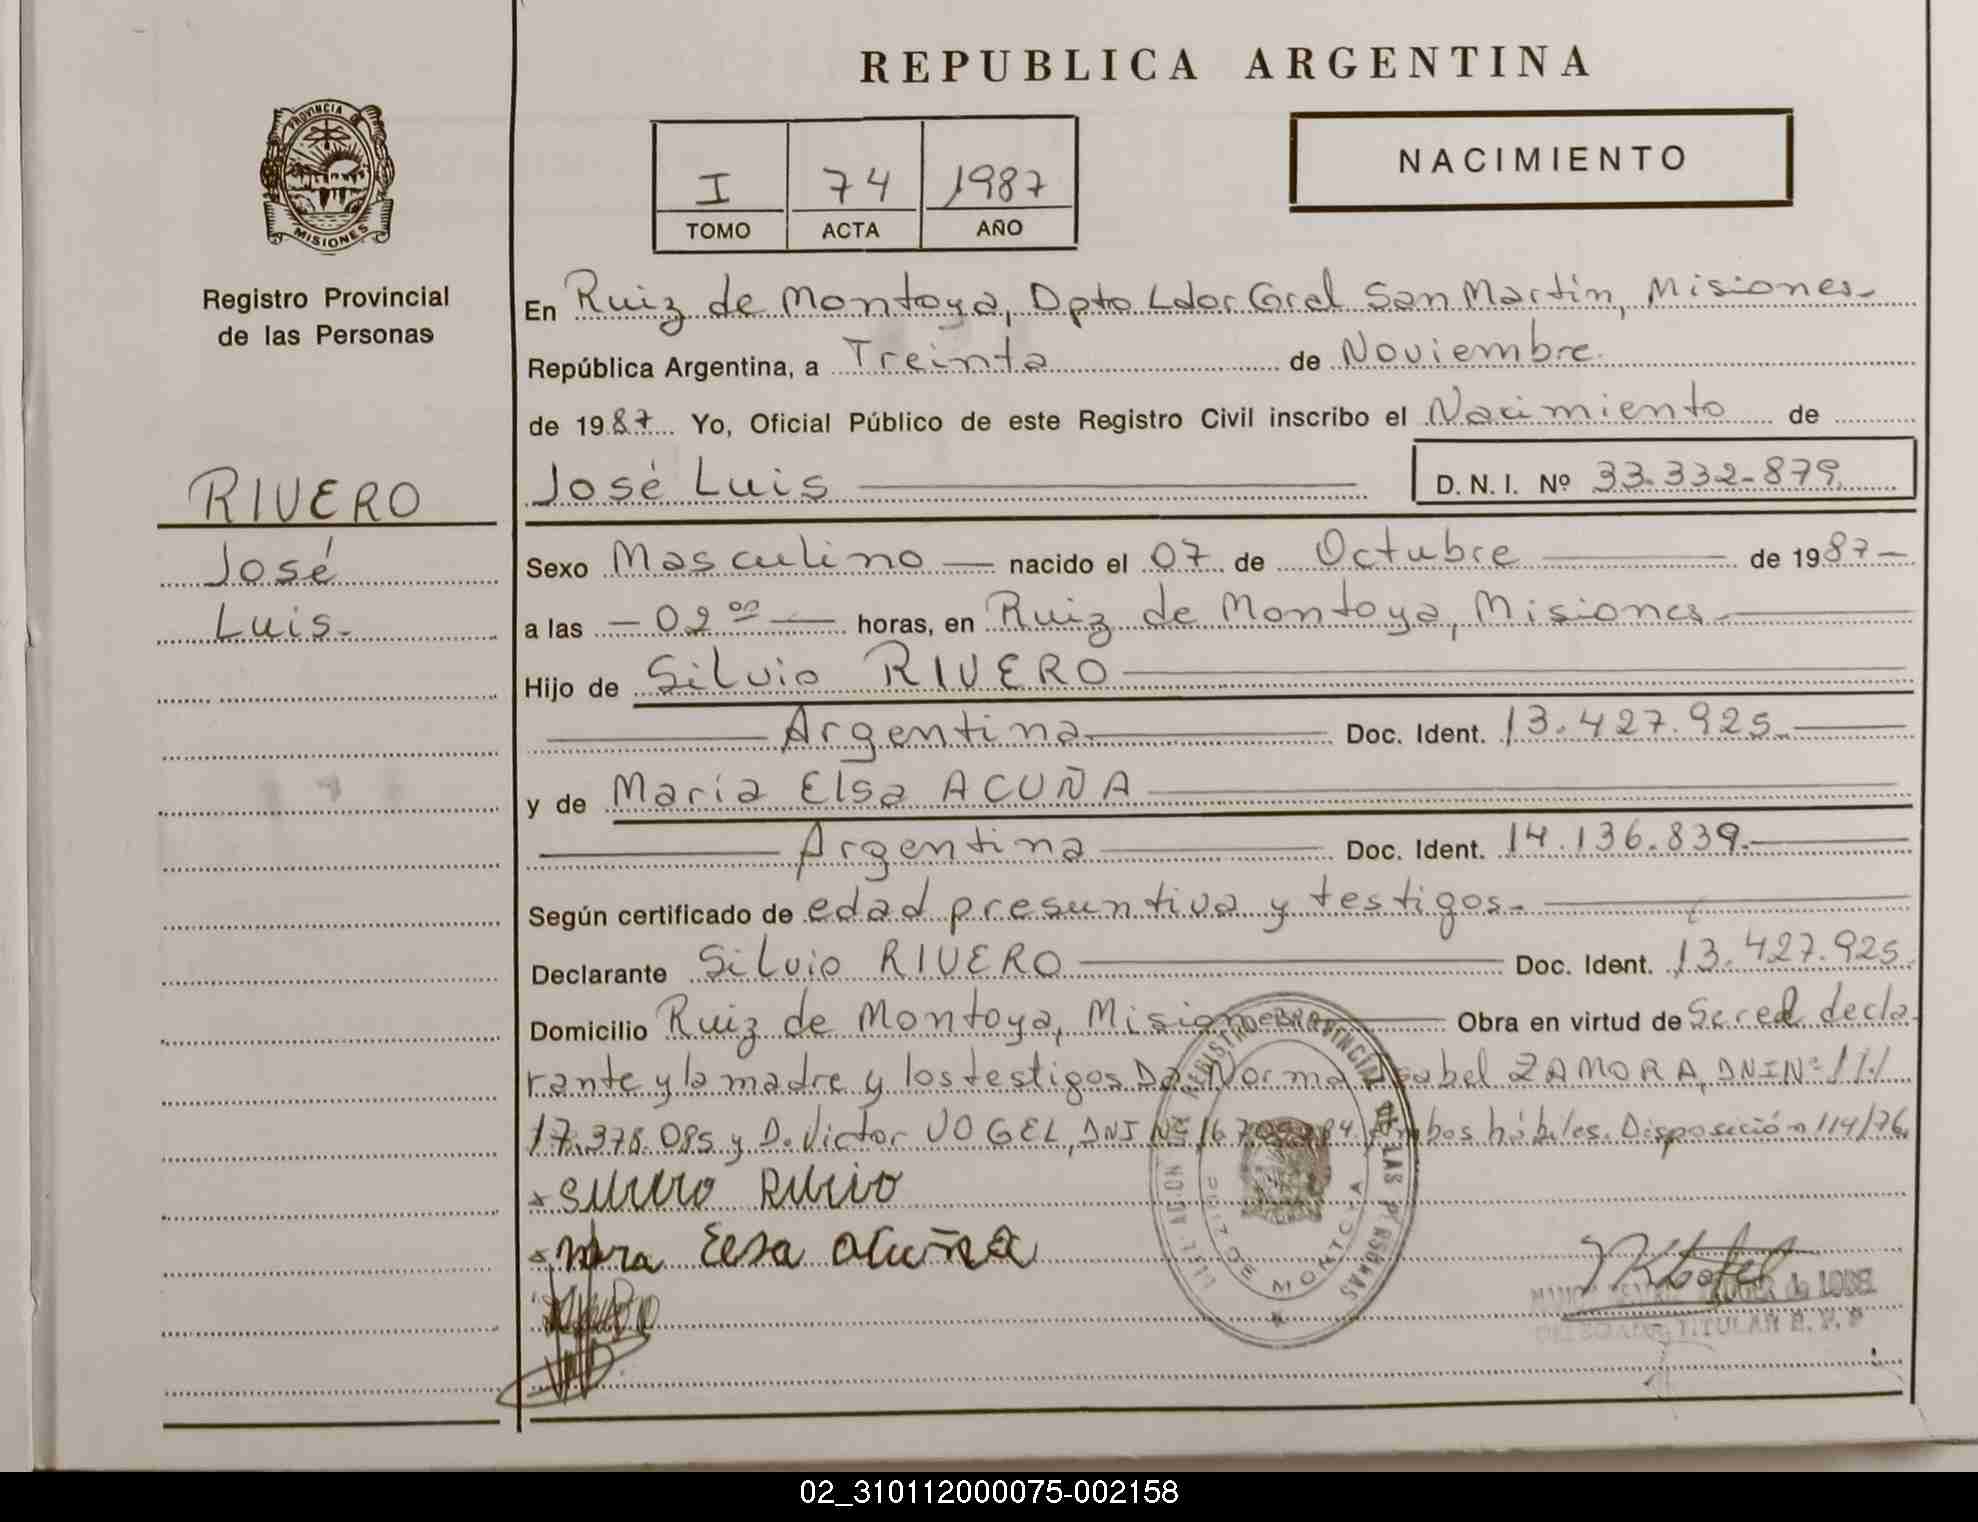 REPUBLICA ARGENTINA
PROVINCIA DE
MISIONES
Registro Provincial
de las Personas
I 74 1987
TOMO ACTA AÑO
NACIMIENTO
En Ruiz de Montoya, Dpto Ldor Gral San Martín, Misiones-
República Argentina, a Treinta de Noviembre.
de 1987 Yo, Oficial Público de este Registro Civil inscribo el Nacimiento de
RIVERO
José
Luis-
José Luis D. N. I. Nº 33.332-879
Sexo Masculino — nacido el 07 de Octubre — de 1987-
a las - 02 00 — horas, en Ruiz de Montoya, Misiones-
Hijo de Silvio RIVERO
Argentina Doc. Ident. 13.427.925-
y de María Elsa ACUÑA
Argentina Doc. Ident. 14.136.839-
Según certificado de edad presuntiva y testigos-
Declarante Silvio RIVERO Doc. Ident. 13.427.925
Domicilio Ruiz de Montoya, Misiones Obra en virtud de Ser el decla
rante y la madre y los testigos Da. Norma Isabel ZAMORA, DNI Nº
17.378.085 y D. Victor VOGEL, DNI Nº ambos hábiles. Disposición 114/76.
REGISTRO PROVINCIAL DE LAS PERSONAS
RUIZ DE MONTOYA
Elsa acuña
de LODEL
TITULAR
02_310112000075-002158